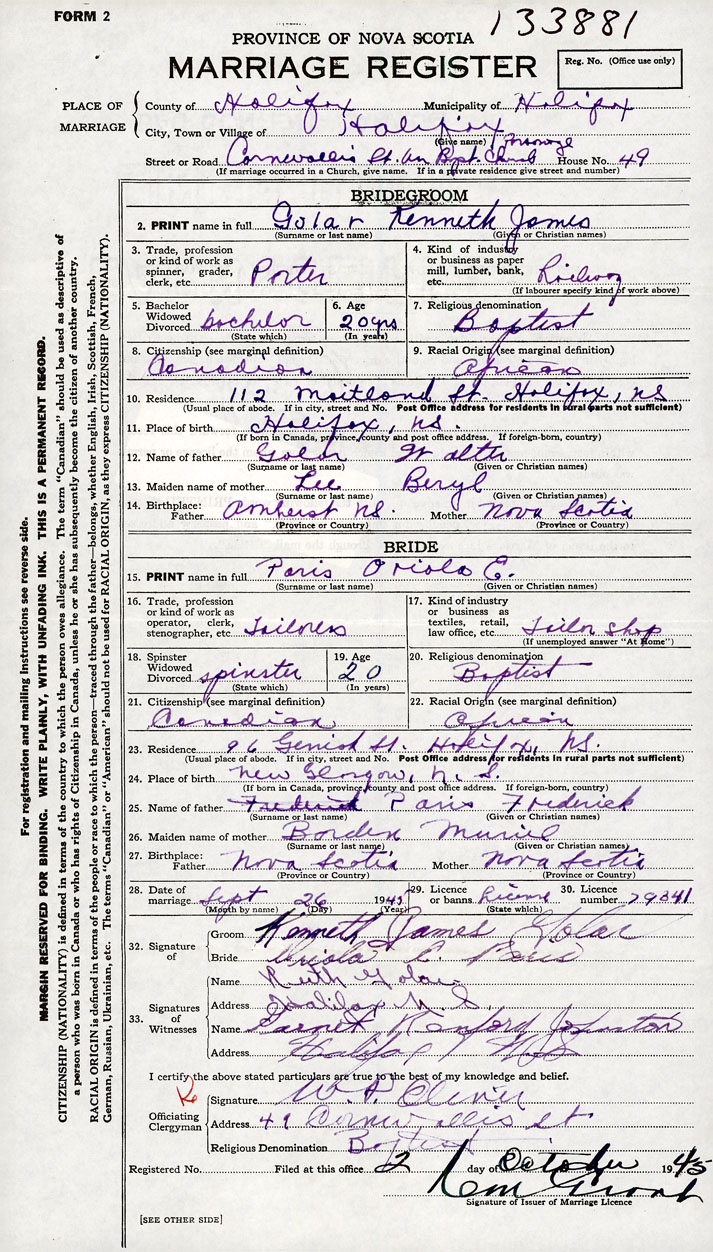 FORM 2
133881
PROVINCE OF NOVA SCOTIA
MARRIAGE REGISTER
Reg. No. (Office use only)
PLACE OF MARRIAGE
County of Halifax Municipality of Halifax
City, Town or Village of Halifax
(Give name)
Street or Road Cornwallis St. Un Bapt. Church House No. 49
(If marriage occurred in a Church, give name. If in a private residence give street and number)
BRIDEGROOM
2. PRINT name in full Golar Kenneth James
(Surname or last name) (Given or Christian names)
3. Trade, profession or kind of work as spinner, grader, clerk, etc. Porter
4. Kind of industry or business as paper mill, lumber, bank, etc. Railway
(If labourer specify kind of work above)
5. Bachelor Widowed Divorced bachelor
(State which)
6. Age 20 yrs
(In years)
7. Religious denomination Baptist
8. Citizenship (see marginal definition) Canadian
9. Racial Origin (see marginal definition) African
10. Residence 112 Maitland St. Halifax, NS
(Usual place of abode. If in city, street and No. Post Office address for residents in rural parts not sufficient)
11. Place of birth Halifax, NS.
(If born in Canada, province, county and post office address. If foreign-born, country)
12. Name of father Golar Walter
(Surname or last name) (Given or Christian names)
13. Maiden name of mother Lee Beryl
(Surname or last name) (Given or Christian names)
14. Birthplace: Father Amherst NS. Mother Nova Scotia
(Province or Country) (Province or Country)
BRIDE
15. PRINT name in full Paris Oriola E.
(Surname or last name) (Given or Christian names)
16. Trade, profession or kind of work as operator, clerk, stenographer, etc. Tailoress
17. Kind of industry or business as textiles, retail, law office, etc. Tailor Shop
(If unemployed answer "At Home")
18. Spinster Widowed Divorced spinster
(State which)
19. Age 20
(In years)
20. Religious denomination Baptist
21. Citizenship (see marginal definition) Canadian
22. Racial Origin (see marginal definition) African
23. Residence 96 St. Halifax, NS.
(Usual place of abode. If in city, street and No. Post Office address for residents in rural parts not sufficient)
24. Place of birth New Glasgow, N. S.
(If born in Canada, province, county and post office address. If foreign-born, country)
25. Name of father Frederick Paris Frederick
(Surname or last name) (Given or Christian names)
26. Maiden name of mother Borden Muriel
(Surname or last name) (Given or Christian names)
27. Birthplace: Father Nova Scotia Mother Nova Scotia
(Province or Country) (Province or Country)
28. Date of marriage Sept 26 1945
(Month by name) (Day) (Year)
29. Licence or banns License
(State which)
30. Licence number 79341
32. Signature of
Groom Kenneth James Golar
Bride Oriola E. Paris
33. Signatures of Witnesses
Name Ruth Golar
Address Halifax N S
Name Garnet Johnston
Address Halifax NS
I certify the above stated particulars are true to the best of my knowledge and belief.
Officiating Clergyman
Signature W. P. Oliver
Address 49 Cornwallis St
Religious Denomination Baptist
Registered No. Filed at this office 2 day of October 1945
Signature of Issuer of Marriage Licence
[SEE OTHER SIDE]
For registration and mailing instructions see reverse side.
MARGIN RESERVED FOR BINDING. WRITE PLAINLY, WITH UNFADING INK. THIS IS A PERMANENT RECORD.
CITIZENSHIP (NATIONALITY) is defined in terms of the country to which the person owes allegiance. The term "Canadian" should be used as descriptive of
a person who was born in Canada or who has rights of Citizenship in Canada, unless he or she has subsequently become the citizen of another country.
RACIAL ORIGIN is defined in terms of the people or race to which the person—traced through the father—belongs, whether English, Irish, Scottish, French,
German, Russian, Ukrainian, etc. The terms "Canadian" or "American" should not be used for RACIAL ORIGIN, as they express CITIZENSHIP (NATIONALITY).